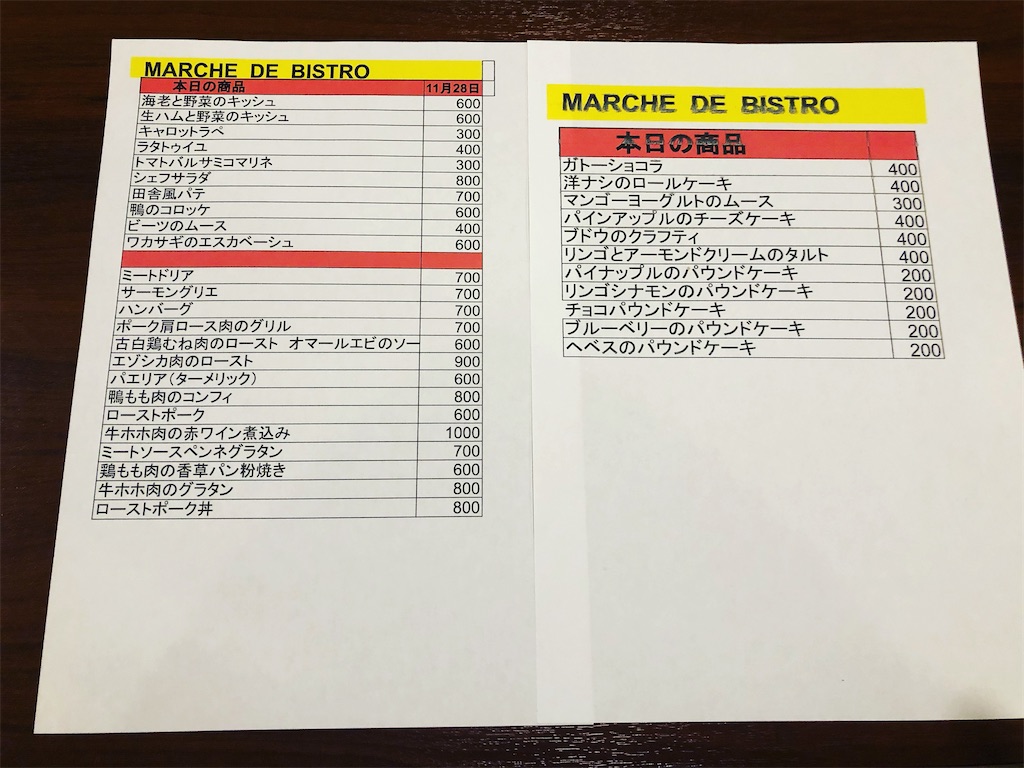 MARCHE DE BISTRO
本日の商品 11月28日
海老と野菜のキッシュ 600
生ハムと野菜のキッシュ 600
キャロットラペ 300
ラタトゥイユ 400
トマトバルサミコマリネ 300
シェフサラダ 800
田舎風パテ 700
鴨のコロッケ 600
ビーツのムース 400
ワカサギのエスカベーシュ 600
ミートドリア 700
サーモングリエ 700
ハンバーグ 700
ポーク肩ロース肉のグリル 700
古白鶏むね肉のロースト オマールエビのソー 600
エゾシカ肉のロースト 900
パエリア（ターメリック） 600
鴨もも肉のコンフィ 800
ローストポーク 600
牛ホホ肉の赤ワイン煮込み 1000
ミートソースペンネグラタン 700
鶏もも肉の香草パン粉焼き 600
牛ホホ肉のグラタン 800
ローストポーク丼 800
MARCHE DE BISTRO
本日の商品
ガトーショコラ 400
洋ナシのロールケーキ 400
マンゴーヨーグルトのムース 300
パインアップルのチーズケーキ 400
ブドウのクラフティ 400
リンゴとアーモンドクリームのタルト 400
パイナップルのパウンドケーキ 200
リンゴシナモンのパウンドケーキ 200
チョコパウンドケーキ 200
ブルーベリーのパウンドケーキ 200
ヘベスのパウンドケーキ 200